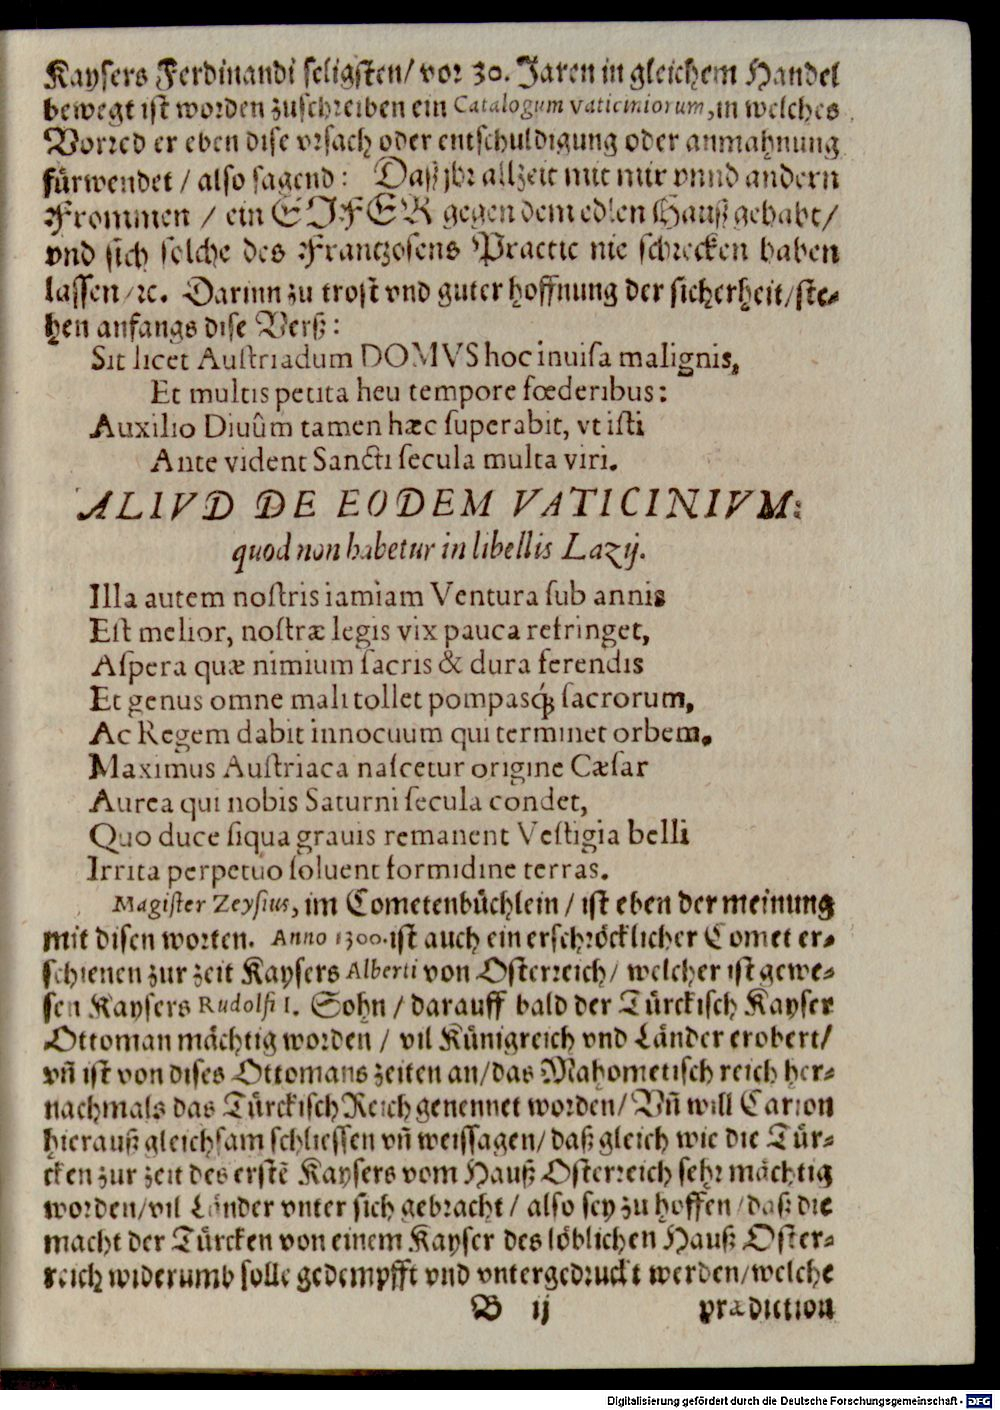 Kaysers Ferdinandi seligsten/ vor 30. Jaren in gleichem Handel
bewegt ist worden zuschreiben ein Catalogum vaticiniorum, in welches
Vorred er eben dise vrsach oder entschuldigung oder anmahnung
fürwendet / also sagend: Daß jhr allzeit mit mir vnnd andern
Frommen / ein EIFER gegen dem edlen Hauß gehabt/
vnd sich solche des Frantzosens Practic nie schrecken haben
lassen/ ꝛc. Darinn zu trost vnd guter hoffnung der sicherheit/ ste-
hen anfangs dise Verß:
Sit licet Austriadum DOMVS hoc inuisa malignis,
Et multis petita heu tempore fœderibus:
Auxilio Diuûm tamen hæc superabit, vt isti
Ante vident Sancti secula multa viri.
ALIVD DE EODEM VATICINIVM:
quod non habetur in libellis Lazij.
Illa autem nostris iamiam Ventura sub annis
Est melior, nostræ legis vix pauca refringet,
Aspera quæ nimium sacris & dura ferendis
Et genus omne mali tollet pompasq́; sacrorum,
Ac Regem dabit innocuum qui terminet orbem.
Maximus Austriaca nascetur origine Cæsar
Aurea qui nobis Saturni secula condet,
Quo duce siqua grauis remanent Vestigia belli
Irrita perpetuo soluent formidine terras.
Magister Zeysius, im Cometenbüchlein / ist eben der meinung
mit disen worten. Anno 1300. ist auch ein erschröcklicher Comet er-
schienen zur zeit Kaysers Alberti von Osterreich/ welcher ist gewe-
sen Kaysers Rudolfi I. Sohn / darauff bald der Türckisch Kayser
Ottoman mächtig worden / vil Künigreich vnd Länder erobert/
vñ ist von dises Ottomans zeiten an/ das Mahometisch reich her-
nachmals das Türckisch Reich genennet worden/ Vñ will Carion
hierauß gleichsam schliessen vñ weissagen/ daß gleich wie die Tür-
cken zur zeit des erstẽ Kaysers vom Hauß Osterreich sehr mächtig
worden/ vil Länder vnter sich gebracht / also sey zu hoffen / daß die
macht der Türcken von einem Kayser des löblichen Hauß Oster-
reich widerumb solle gedempfft vnd vntergedruckt werden/ welche
B ij prædiction
Digitalisierung gefördert durch die Deutsche Forschungsgemeinschaft - DFG